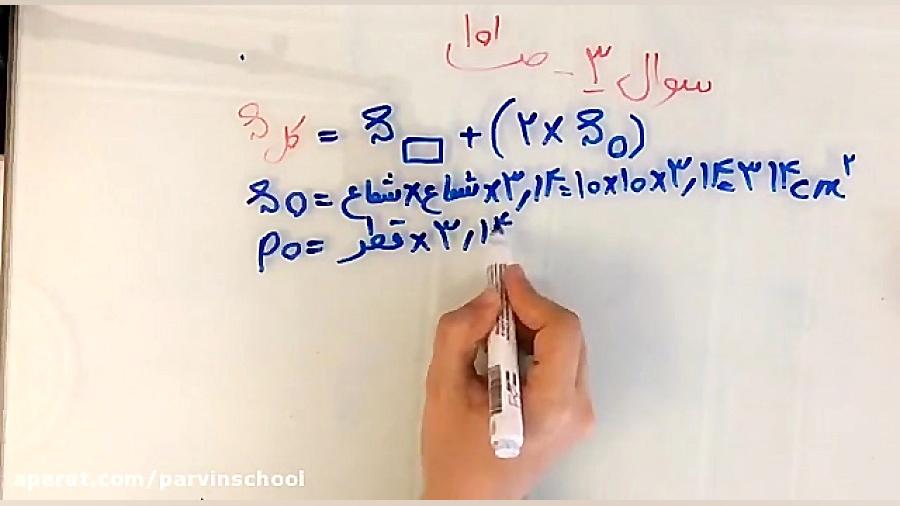 سوال ۳ - ص ۱۵۱
S کل = S▭ + (۲ × S○)
S○ = شعاع × شعاع × ۳,۱۴ = ۱۰ × ۱۰ × ۳,۱۴ = ۳۱۴ cm²
P○ = قطر × ۳,۱۴
aparat.com/parvinschool